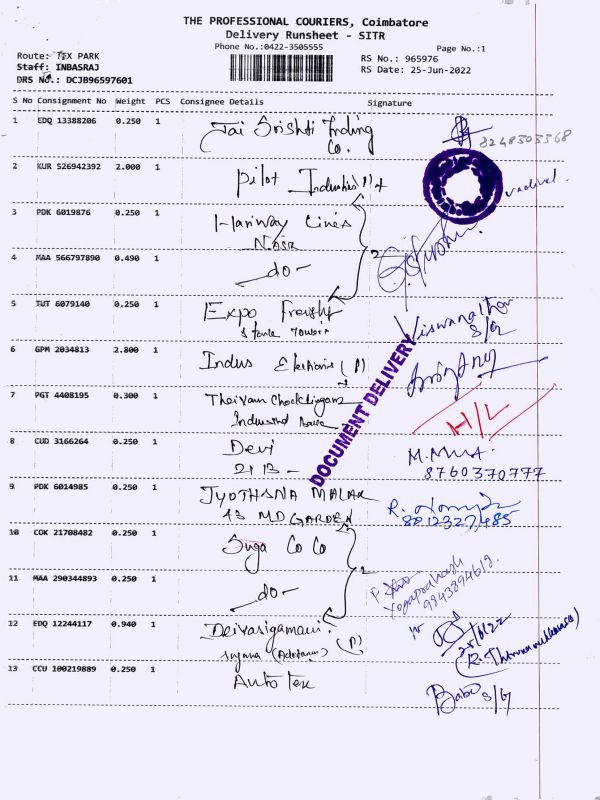 THE PROFESSIONAL COURIERS, Coimbatore
Delivery Runsheet - SITR
Phone No.:0422-3505555
Page No.:1
Route: TEX PARK
Staff: INBASRAJ
DRS No.: DCJB96597601
RS No.: 965976
RS Date: 25-Jun-2022
S No Consignment No Weight PCS Consignee Details Signature
1 EDQ 13388206 0.250 1 Jai Srishti Trading
Co.
8248303368
2 KUR 526942392 2.000 1 Pilot Industries (P)
vadivel.
3 PDK 6019876 0.250 1
4 MAA 566797890 0.490 1 - do -
2
5 TUT 6079140 0.250 1 Expo Freight
Viswanathan
S/O
6 GPM 2034813 2.800 1 Indus (P)
DOCUMENT DELIVERY
7 PGT 4408195 0.300 1 Theivam
H/L
8 CUD 3166264 0.250 1 Devi
2113 -
M.
8760370777
9 PDK 6014985 0.250 1 JYOTHSNA MALAR
43 MD GARDEN
R.
8012327485
10 COK 21708482 0.250 1 Suga Co Co
11 MAA 290344893 0.250 1 - do -
Yogaprakash
9843894619.
12 EDQ 12244117 0.940 1 Deivasigamani
(P)
25/6/22
13 CCU 100219889 0.250 1 Auto Tex
Babu S/G